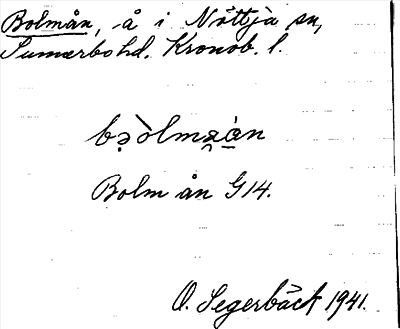 Bolmån, å i Nöttja sn,
Sunnerbo hd. Kronob. l.
bə̀òlmaàn
Bolm ån G14.
O. Segerbäck 1941.